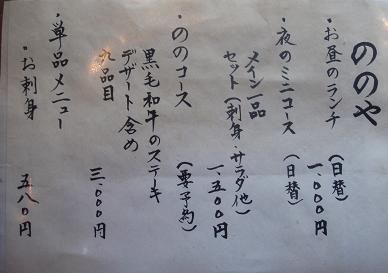 ののや
・お昼のランチ
(日替)
一、〇〇〇円
・夜のミニコース
(日替)
メイン一品
セット(刺身・サラダ他)
一、五〇〇円
・ののコース
(要予約)
黒毛和牛のステーキ
デザート含め
九品目
三、〇〇〇円
・単品メニュー
・お刺身
五八〇円